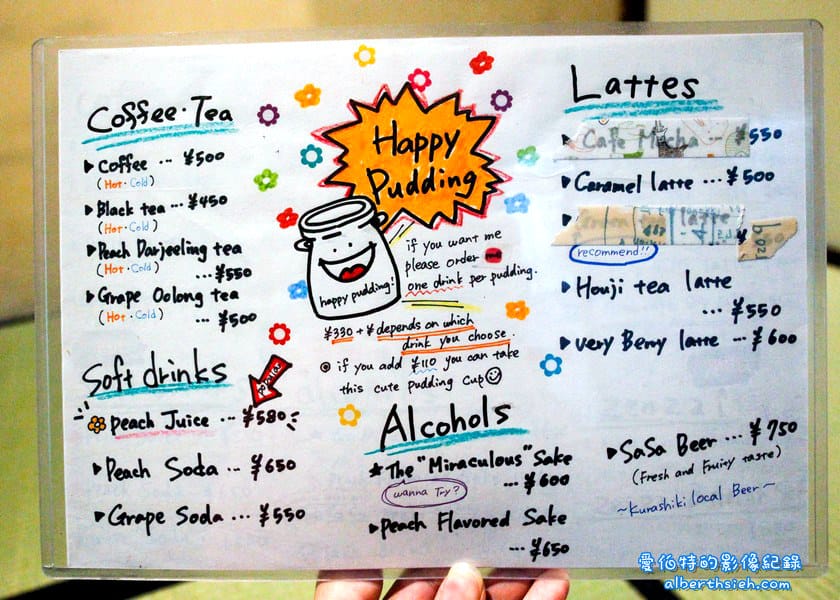 Coffee・Tea
Coffee ... ¥500
(Hot・Cold)
Black tea ... ¥450
(Hot・Cold)
Peach Darjeeling tea
(Hot・Cold) ... ¥550
Grape Oolong tea
(Hot・Cold) ... ¥500
Soft drinks
Peach Juice ... ¥580
Peach Soda ... ¥650
Grape Soda ... ¥550
Happy
Pudding
happy pudding!
if you want me
please order
one drink per pudding.
¥330 + ¥ depends on which
drink you choose.
◎ if you add ¥110 you can take
this cute pudding cup
Alcohols
★ The "Miraculous" Sake
... ¥600
wanna Try?
Peach Flavored Sake
... ¥650
Lattes
Cafe Mocha ... ¥550
Caramel latte ... ¥500
latte
recommend!!
Houji tea latte
... ¥550
very Berry latte ... ¥600
SaSa Beer ... ¥750
(Fresh and Fruity taste)
~Kurashiki local Beer~
愛伯特的影像紀錄
alberthsieh.com